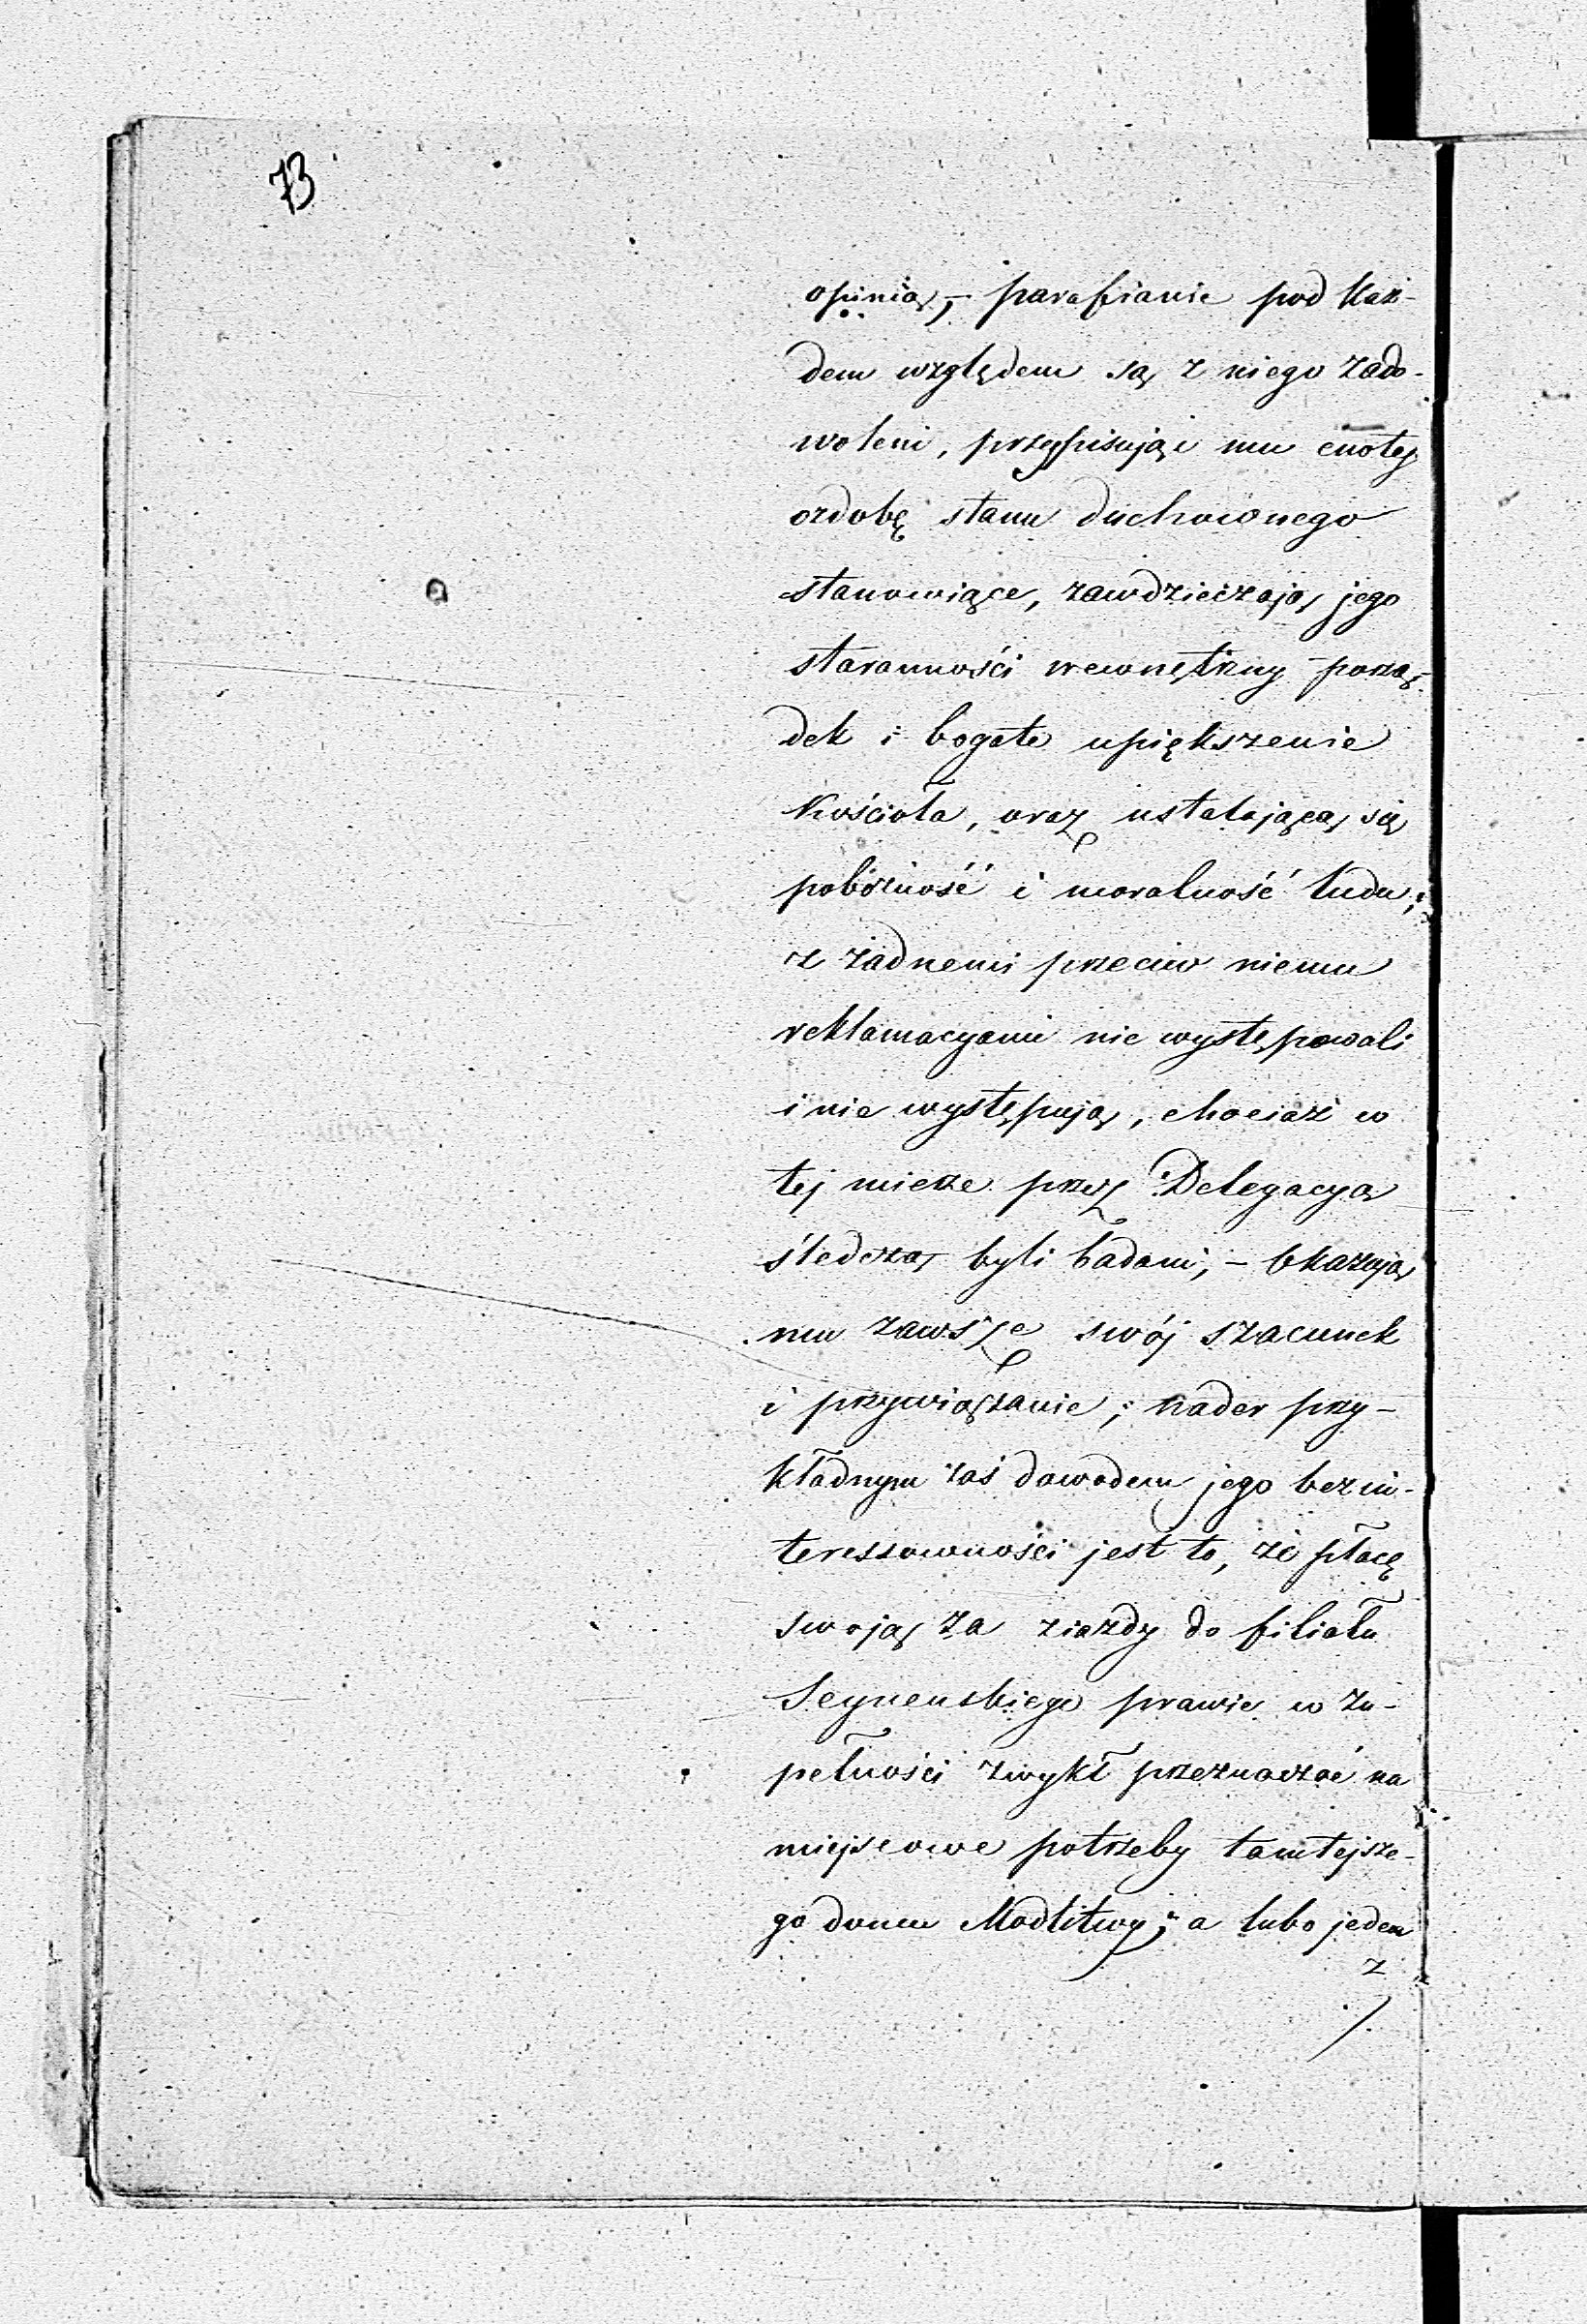 73
opinią, – parafianie pod każ-
dem względem są z niego zado-
woleni, przypisując mu cnoty
ozdobę stanu duchownego
stanowiące, zawdzięczają jego
staranności wewnętrzny porzą-
dek i bogate upiększenie
Kościoła, oraz ustalającą się
pobóżność i moralność ludu;
z żadnemi przeciw niemu
reklamacyami nie występowali
i nie występują, chociaż w
tej mierze przez Delegacyą
śledczą byli badani, – Okazują
mu zawsze swój szacunek
i przywiązanie; nader przy-
kładnym zaś dowodem jego bezin-
teressowności jest to, że płacę
swoją za ziazdy do filiału
Seynenskiego prawie w zu-
pełności zwykł przeznaczać na
miejscowe potrzeby tamtejsze-
go domu Modlitwy; a lubo jeden
z